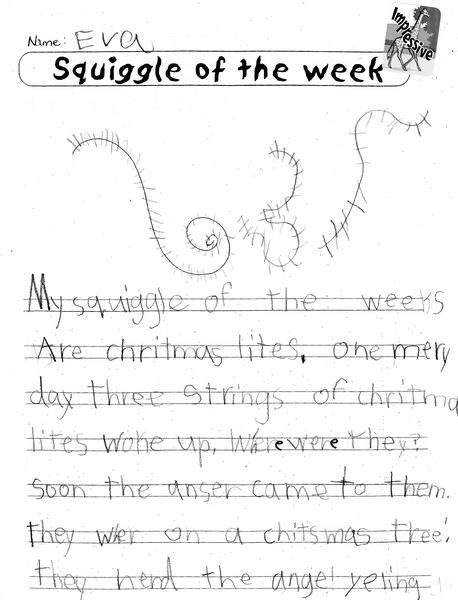 Impressive
Name: Eva
Squiggle of the week
My squiggle of the weeks
Are chritmas lites, one mery
day three strings of chritma
lites woke up, Where were they?
soon the anser came to them.
they wher on a chitsmas tree!
they herd the angel yeling